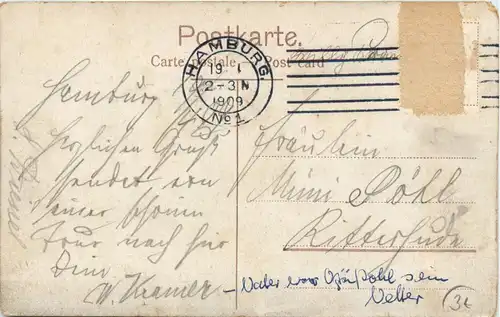 Postkarte.
Carte postale — Post card
HAMBURG.
19 1
2-3 N
1909
No 1
Hamburg
Herzlichen Gruß
sendet von
seiner schönen
Tour nach hier
Dein
W Kramer
Fräulein
Mimi Pöhl
Ritterhude
– Vater war Pohl sein
Vetter